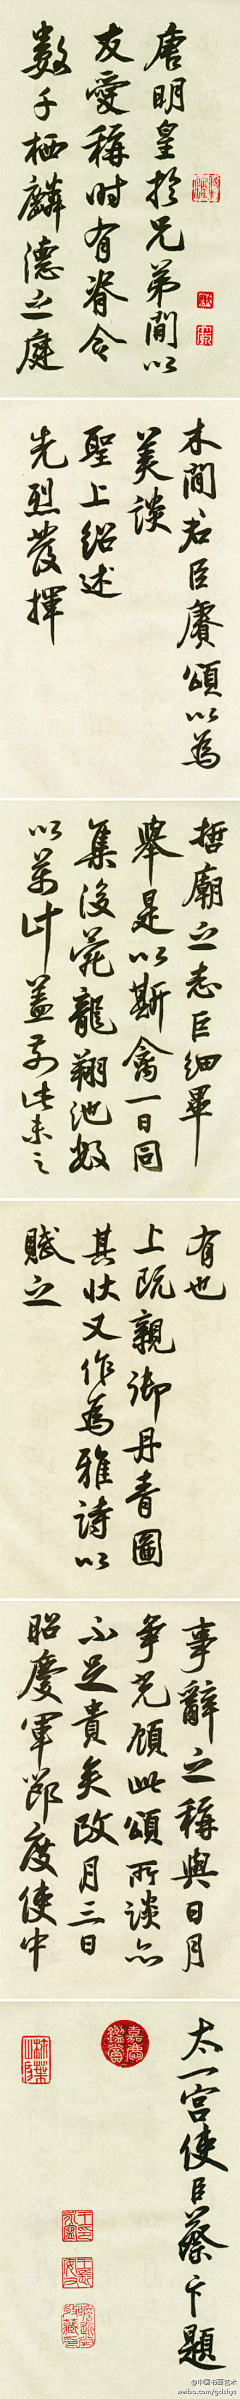 唐明皇於兄弟間以
友愛稱時有脊令
數千栖麟德之庭
木間名臣賡頌以為
美談
聖上紹述
先烈發揮
哲廟之志巨細畢
舉是以斯禽一日同
集後苑龍翔池數
以萬計蓋前此未之
有也
上既親御丹青圖
其狀又作為雅詩以
賦之
事辭之稱與日月
爭光顧此頌所談亦
不足貴矣政月三日
昭慶軍節度使中
太一宮使臣蔡卞題
嘉慶鑑賞
@中国书画艺术
weibo.com/gdshys